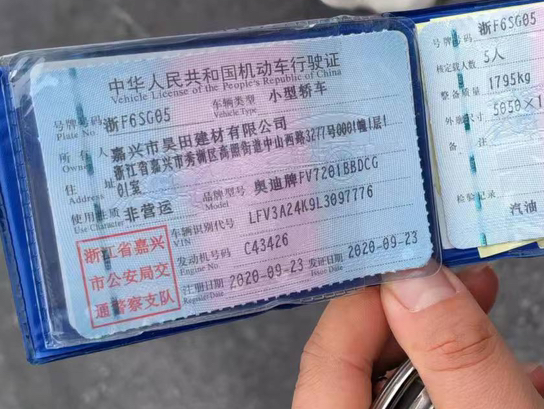 中华人民共和国机动车行驶证
Vehicle License of the People's Republic of China
号牌号码 浙F6SG05 车辆类型 小型轿车
Plate No. Vehicle Type
所有人 嘉兴市昊田建材有限公司
Owner
住址 浙江省嘉兴市秀洲区高照街道中山西路3277号0001幢1层1
Address 01室
使用性质 非营运 品牌型号 奥迪牌FV7201BBDCG
Use Character Model
浙江省嘉兴
市公安局交
通警察支队
车辆识别代号 LFV3A24K9L3097776
VIN
发动机号码 C43426
Engine No.
注册日期 2020-09-23 发证日期 2020-09-23
Register Date Issue Date
号牌号码 浙F6SG05
核定载人数 5人
整备质量 1795kg
外廓尺寸 5050×1
检验记录
汽油